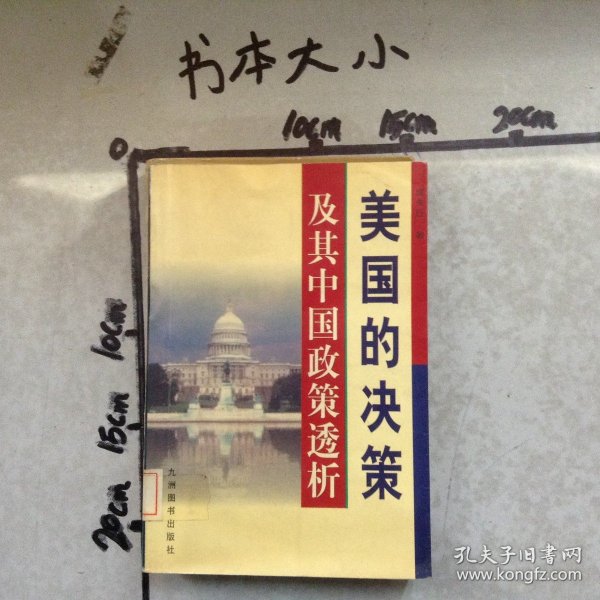 书本大小
0
10cm
15cm
20cm
10cm
15cm
20cm
美国的决策
及其中国政策透析
九洲图书出版社
孔夫子旧书网
www.kongfz.com